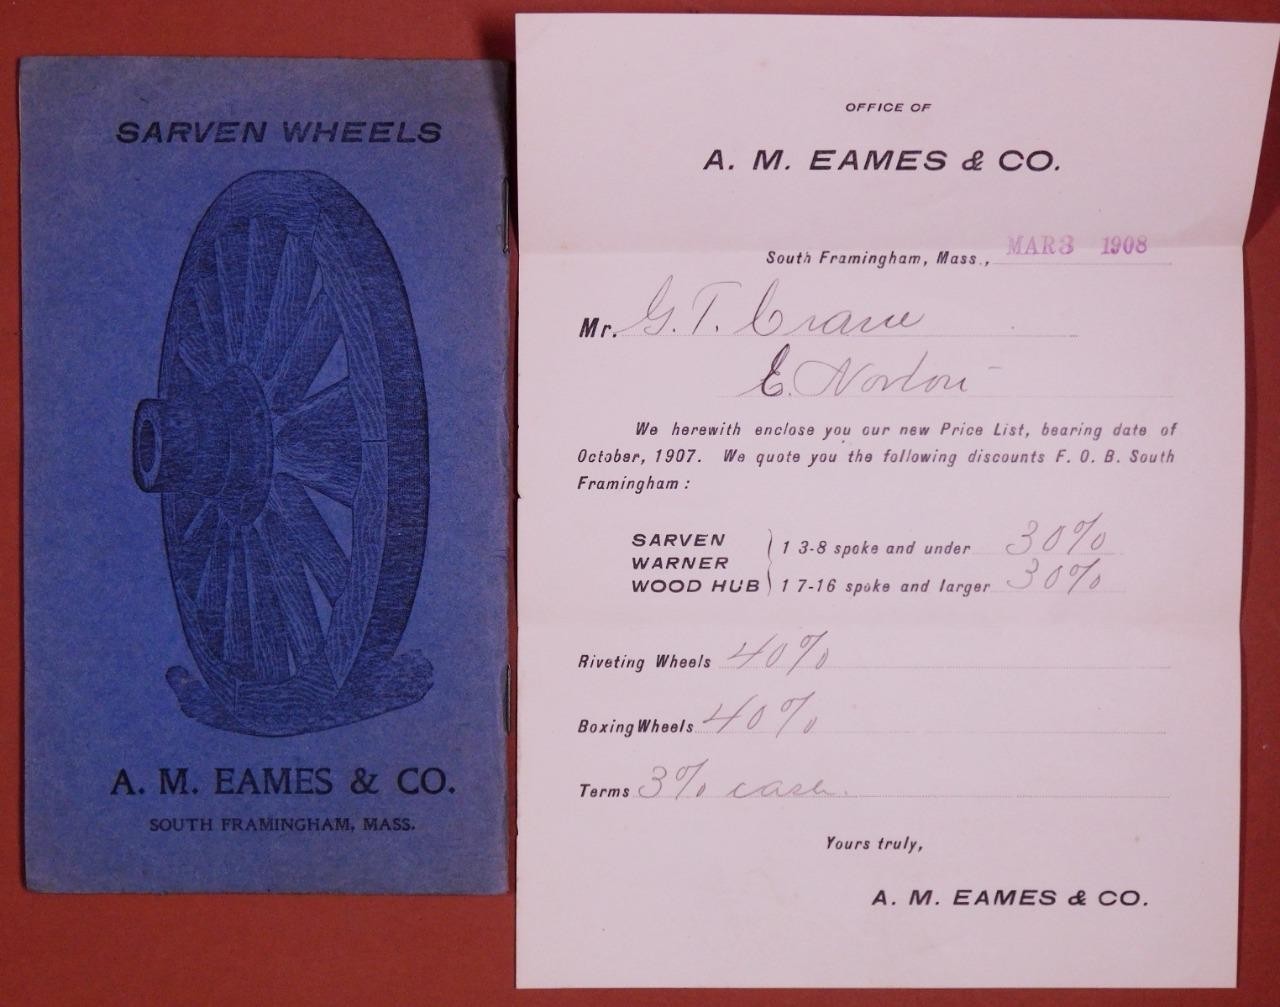 SARVEN WHEELS
A. M. EAMES & CO.
SOUTH FRAMINGHAM, MASS.
OFFICE OF
A. M. EAMES & CO.
South Framingham, Mass., MAR 3 1908
Mr. G. T. Crane
E. Norton
We herewith enclose you our new Price List, bearing date of
October, 1907. We quote you the following discounts F. O. B. South
Framingham:
SARVEN
WARNER
WOOD HUB
1 3-8 spoke and under 30%
1 7-16 spoke and larger 30%
Riveting Wheels 40%
Boxing Wheels 40%
Terms 3% cash.
Yours truly,
A. M. EAMES & CO.